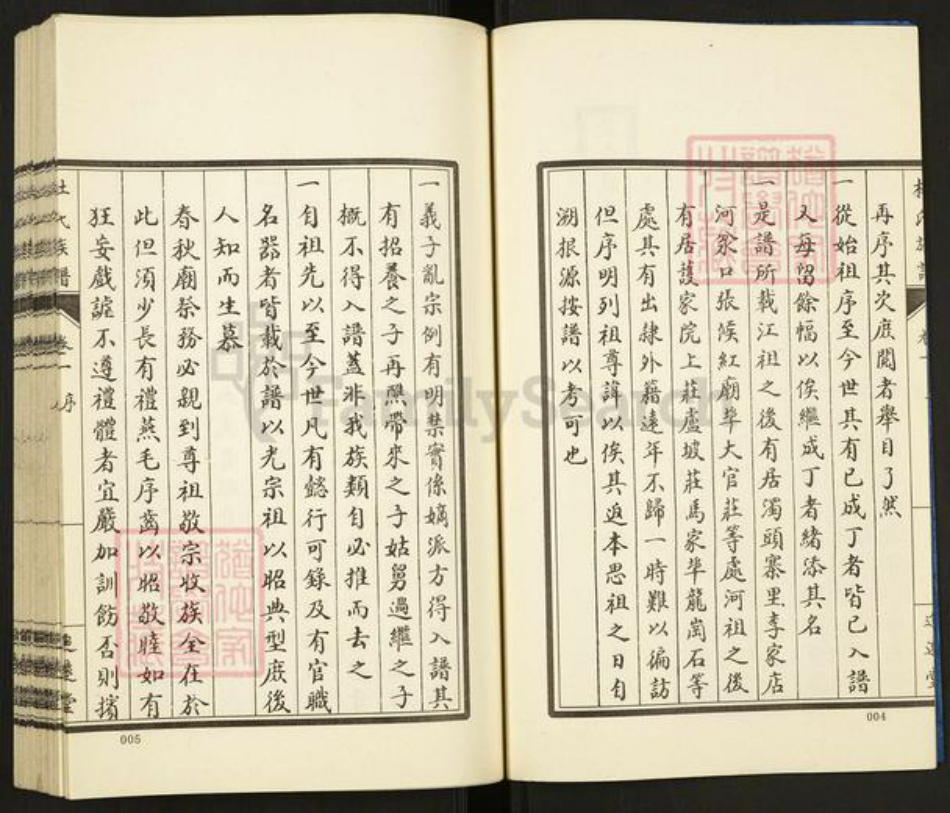 再序其次庶閱者舉目了然
一從始祖序至今世其有已成丁者皆已入譜
又每留餘幅以俟繼成丁者緒添其名
一是譜所載江祖之後有居濁頭寨里李家店
河家口張候紅廟埠大官莊等處河祖之後
有居護家院上莊盧坡莊馬家埠龍崗石等
處其有出隷外籍遠年不歸一時難以徧訪
但序明列祖尊諱以俟其返本思祖之日自
溯根源按譜以考可也
004
一義子亂宗例有明禁實係嫡派方得入譜其
有招養之子再醮帶來之子姑舅過繼之子
概不得入譜蓋非我族類自必推而去之
一自祖先以至今世凡有懿行可錄及有官職
名器者皆載於譜以光宗祖以昭典型庶後
人知而生慕
春秋廟祭務必親到尊祖敬宗收族全在於
此但須少長有禮燕毛序齒以昭敬睦如有
狂妄戲謔不遵禮體者宜嚴加訓飭否則擯
杜氏族譜 卷一 序
追遠堂
005
FamilySearch